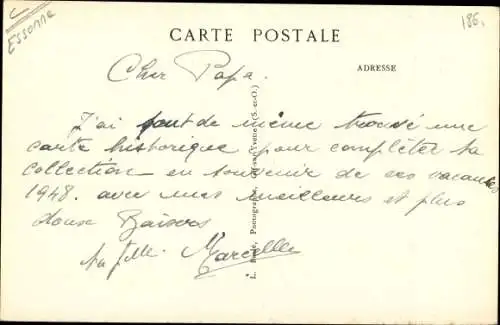 Essonne
186.
CARTE POSTALE
ADRESSE
Cher Papa.
J'ai tout de même trouvé une
carte historique pour compléter ta
collection en souvenir de ces vacances
1948. avec mes meilleurs et plus
doux Baisers
ta fille Marcelle
Photographe, Gif-sur-Yvette (S.-et-O.)